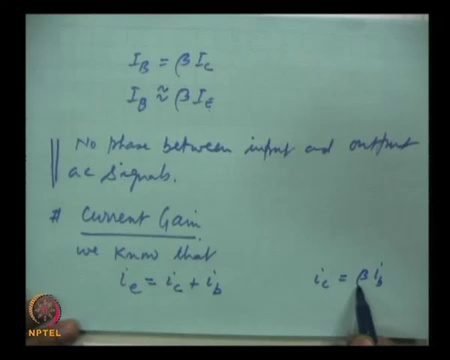 I_B = β I_C
I_B ≈ β I_E
No phase between input and output
ac signals.
# Current Gain
we know that
i_e = i_c + i_b i_c = β i_b
NPTEL